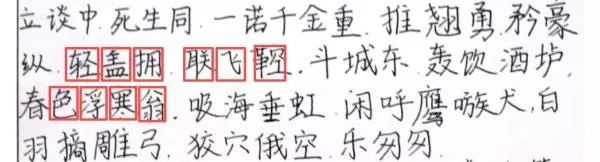 立谈中.死生同.一诺千金重.推翘勇.矜豪
纵.轻盖拥.联飞鞚.斗城东.轰饮酒垆,
春色浮寒翁.吸海垂虹.闲呼鹰嗾犬,白
羽摘雕弓.狡穴俄空.乐匆匆.